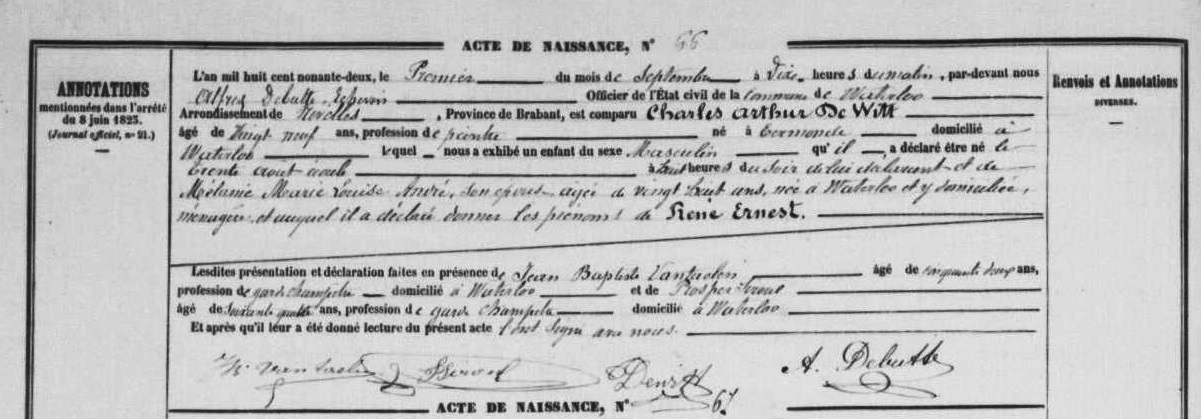 ACTE DE NAISSANCE, N° 66
ANNOTATIONS
mentionnées dans l'arrêté
du 8 juin 1823.
(Journal officiel, n° 21.)
Renvois et Annotations
DIVERSES.
L'an mil huit cent nonante-deux, le Premier du mois de Septembre à dix heures du matin, par-devant nous
Alfred Debutte Echevin Officier de l'État civil de la commune de Waterloo
Arrondissement de Nivelles, Province de Brabant, est comparu Charles Arthur De Witt
âgé de vingt neuf ans, profession de peintre né à termonde domicilié à
Waterloo lequel nous a exhibé un enfant du sexe Masculin qu'il a déclaré être né le
trente août à huit heures du soir de lui déclarant et de
Mélanie Marie Louise André, son épouse, agée de vingt huit ans, née à Waterloo et y domiciliée,
ménagère et auquel il a déclaré donner les prénoms de René Ernest.
Lesdites présentation et déclaration faites en présence de Jean Baptiste âgé de cinquante deux ans,
profession de garde champêtre domicilié à Waterloo et de Prosper
âgé de ans, profession de garde champêtre domicilié à Waterloo
Et après qu'il leur a été donné lecture du présent acte l'ont signé avec nous.
Dewitt A. Debutte
ACTE DE NAISSANCE, N° 67